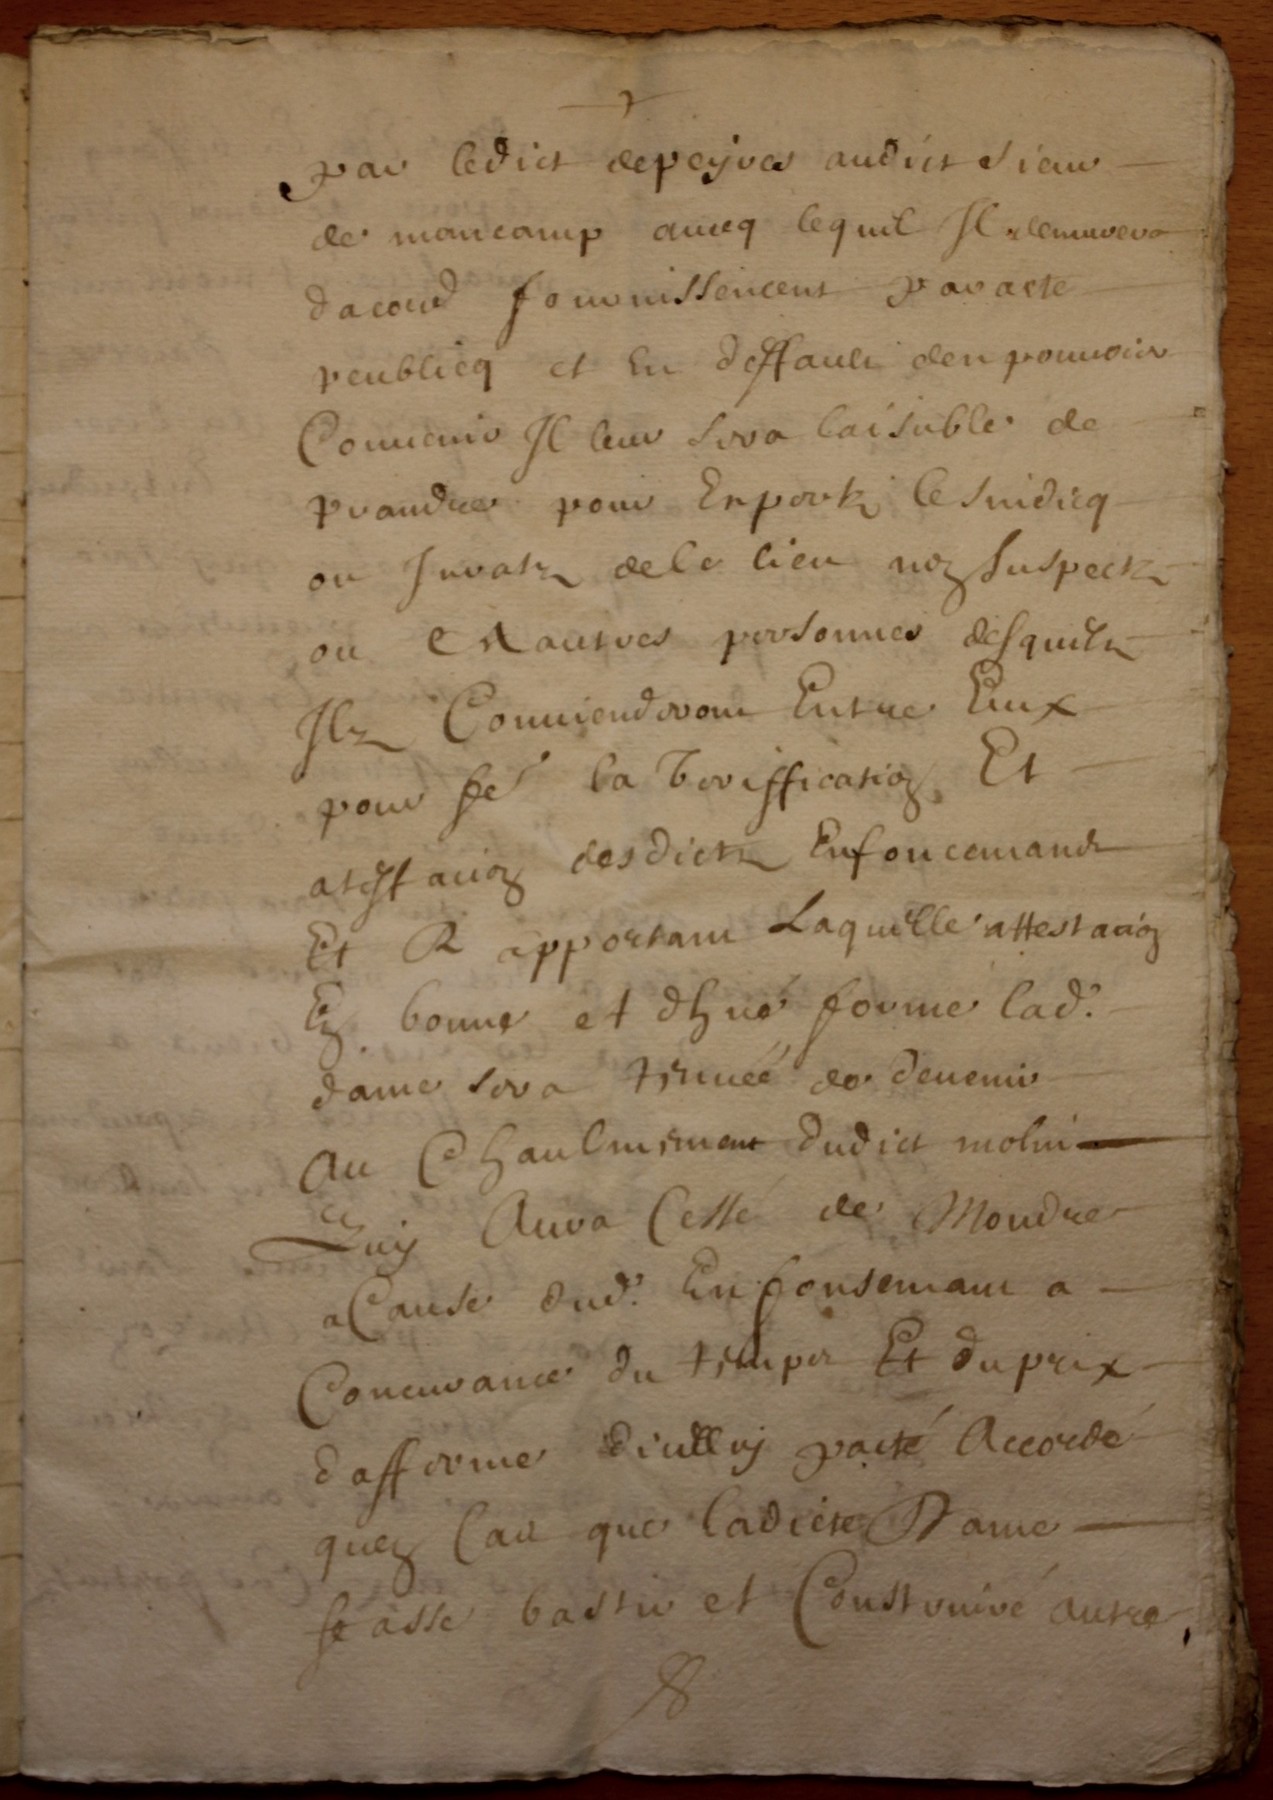 par ledict depeyres audict sieur
de moncamp avecq lequel Il demeurera
dacord fournissencent par acte
peublicq et En deffault den pouvoir
Convenir Il leur sera laisuble de
prandre pour Expertz le sindicq
ou Juratz de le lieu non suspectz
ou et autres personnes desquelz
Ilz Conviendront Entre Eux
pour fe la veriffication Et
atestation desdictz Enfoncemandz
Et Rapportant Laquelle attestation
En bonne et dhue forme lad.
dame sera tenuée de devenir
au Chaulmement dudict molin
quy Aura Cessé de Moudre
a Cause dud. Enfonsemant a
Concurance du temps Et du prix
dafferme dicelluy pacté Accordé
quen Cas que ladicte Dame
feasse bastir et Construire autre